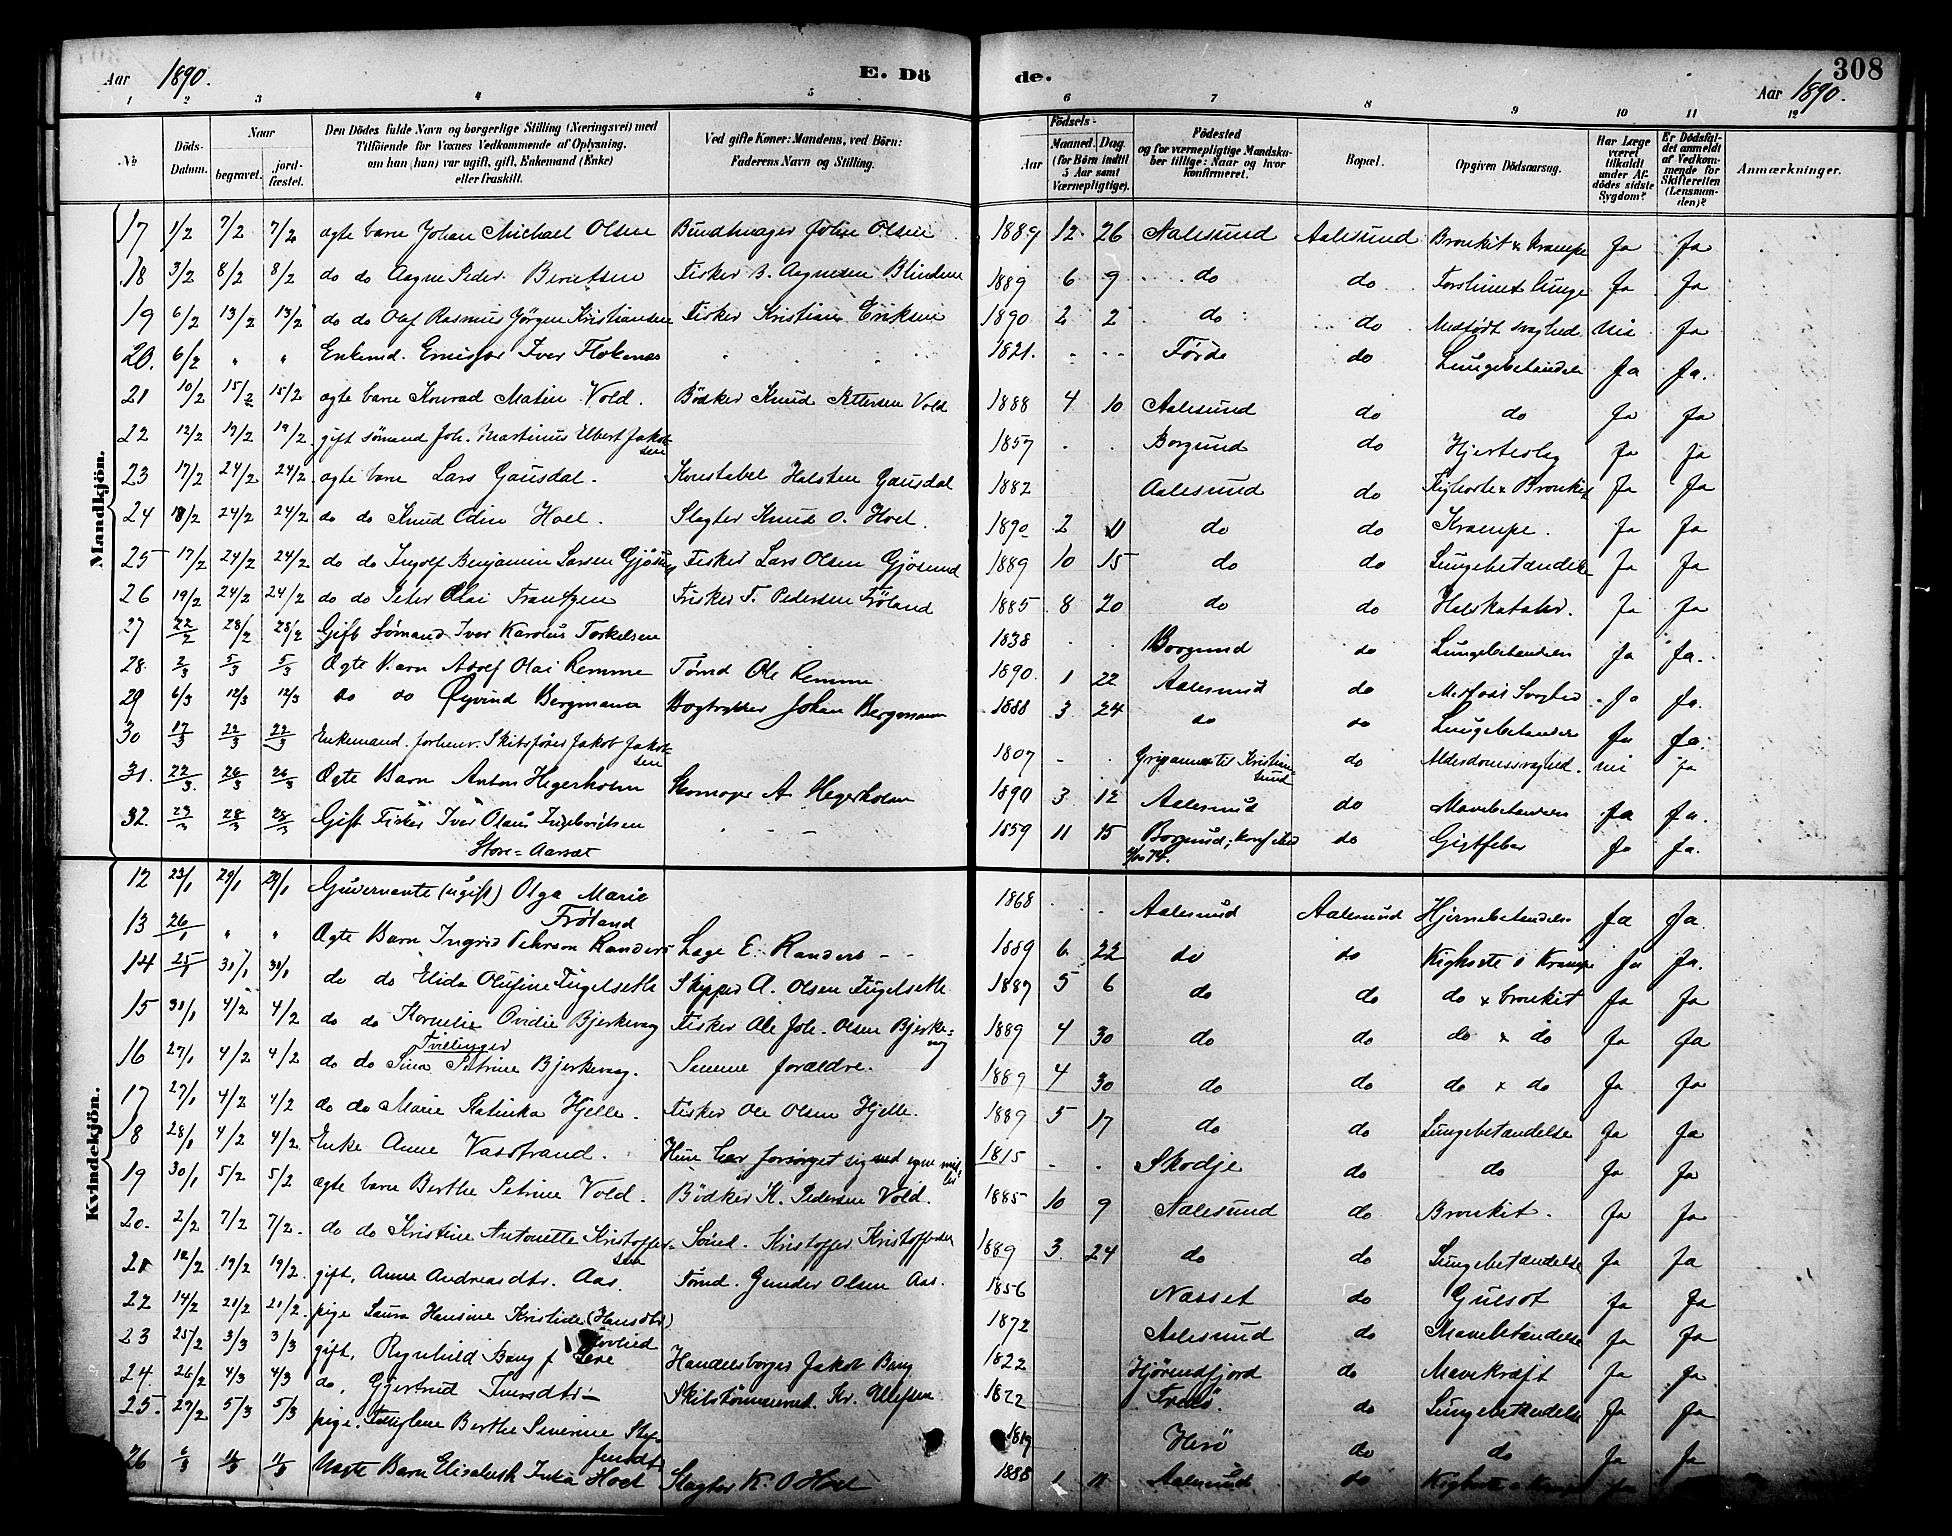 Aar 1890. E. Dö de. Aar 1890. 308
1 2 3 4 5 6 7 8 9 10 11 12
№ Döds-Datum. Naar begravet. jordfæstet. Den Dödes fulde Navn og borgerlige Stilling (Næringsvei) med Tilföiende for Voxnes Vedkommende af Oplysning, om han (hun) var ugift, gift, Enkemand (Enke) eller fraskilt. Ved gifte Koner: Mandens, ved Börn: Faderens Navn og Stilling. Födsels- Aar Maaned. Dag. (for Börn indtil 5 Aar samt Værnepligtige). Födested og for værnepligtige Mandskaber tillige: Naar og hvor konfirmeret. Bopæl. Opgiven Dödsaarsag. Har Læge været tilkaldt under Afdödes sidste Sygdom? Er Dödsfaldet anmeldt af Vedkommende for Skifteretten (Lensmanden)? Anmærkninger.
Mandkjön.
17 1/2 7/2 7/2 ægte barn Johan Michael Olsen Olsen 1889 12 26 Aalesund Aalesund Bronkit & Krampe Ja Ja
18 3/2 8/2 8/2 do do Aagne Peder Berntsen Fisker B. Aagnesen 1889 6 9 do do Ja Ja
19 6/2 13/2 13/2 do do Olaf Rasmus Jörgen Kristiansen Fisker Kristian Eriksen 1890 2 2 do do Medfödt svaghed Nei Ja
20. 6/2 " " Enkemd. Iver Flokenes 1821. Förde do Lungebetændelse Ja Ja.
21 10/2 15/2 15/2 ægte barn Konrad Matin Vold. Bödker Knud Vold 1888 4 10 Aalesund do do Ja Ja
22 12/2 19/2 19/2 gift sömand Joh. Martinus Elbert Jakobsen 1857 Borgund do Hjerteslag Ja Ja
23 17/2 24/2 24/2 ægte barn Lars Gausdal. Konstabel Halsten Gausdal 1882 Aalesund do Kighoste & Bronkit Ja Ja
24 18/2 24/2 24/2 do do Knud Odin Hoel. Slagter Knud O. Hoel. 1890 2 11 do do Krampe. Ja Ja
25 17/2 24/2 24/2 do do Ingolf Benjamin Larsen Gjösund Fisker Lars Olsen Gjösund 1889 10 15 do do Lungebetændelse Ja Ja
26 19/2 24/2 24/2 do do Peter Olai Frantzen Fisker F. Pedersen Fröland 1885 8 20 do do Halskatahr. Ja Ja
27 22/2 28/2 28/2 Gift Sömand Iver Karolus Torkelsen 1838 Borgund do Lungebetændelse Ja Ja.
28. 2/3 5/3 5/3 Ægte Barn Adolf Olai Remme Tömd Ole Remme 1890. 1 22 Aalesund do Medfödt Svaghed Ja Ja.
29 6/3 12/3 12/3 do do Øyvind Bergmann Bogtrykker Johan Bergmann 1888 3 24 do do Lungebetændelse Ja Ja.
30 17/3 22/3 22/3 Enkemand. forhenv. Skibsförer Jakob Jakobsen 1807 til Kristiansund do Alderdomssvaghed. nei ja
31. 22/3 26/3 26/3 Ægte Barn Anton Hegerholm Skomager A. Hegerholm 1890 3 12 Aalesund do Mavebetændelse Ja Ja.
32. 23/3 28/3 28/3 Gift Fisker Iver Olaus Ingebrigtsen 1859 11 15 Borgund, do Gigtfeber Ja Ja.
Kvindekjön.
12 23/1 29/1 29/1 Guvernante (ugift) Olga Marie Fröland 1868 Aalesund Aalesund Hjernebetændelse Ja Ja.
13 26/1 " " Ægte Barn Ingrid Pehrson Randers Læge E. Randers 1889 6 22 do do Kighoste & Krampe Ja Ja.
14 25/1 30/1 30/1 do do Elida Olufine Fugelseth Skipper A. Olsen Fugelseth 1887 5 6 do do do & bronkit Ja Ja
15 30/1 4/2 4/2 do do Kornelie Ovidie Bjerkevaag Fisker Ole Joh. Olsen Bjerkevaag 1889 4 30 do do do & do Ja Ja
Tvillinger
16 27/1 4/2 4/2 do do Sina Petrine Bjerkevaag. Samme forældre. 1889 4 30 do do do & do Ja Ja
17 27/1 4/2 4/2 do do Marie Katinka Hjelle. Fisker Ole Olsen Hjelle. 1889 5 17 do do Lungebetændelse Ja Ja
18 28/1 4/2 4/2 Enke Anne Vasstrand. Hun har forsörget sig ved egne midler 1815 Skodje do do Ja Ja
19 30/1 5/2 5/2 ægte barn Berthe Petrine Vold. Bödker K. Pedersen Vold. 1885 10 9 Aalesund do Bronkit. Ja Ja
20. 2/2 7/2 7/2. do do Kristine Antonette Kristoffersen Sömd. Kristoffer Kristoffersen 1889 3. 24 do do Lungebetændelse Ja Ja
21 12/2 19/2 19/2. gift, Anne Andreasdtr. Aas. Tömd. Gunder Olsen Aas. 1856 Næsset do Gulsot Ja Ja
22 14/2 21/2 21/2. pige Laura Hansine Kristine (Hansdtr) 1872 Aalesund do Mavebetændelse Ja Ja
23 25/2 3/3 3/3 gift, Ragnhild Bang f. Handelsborger Jakob Bang 1822 Hjörundfjord do Mavekræft Ja Ja
24. 26/2 4/3 4/3 do, Gjertrud Iversdtr. Skibstömmermd. Kr. Ulefsen 1822 do Lungebetændelse Ja Ja
25. 27/2 5/3 5/3 pige. Berthe Severine 1819 Herö do do Ja Ja
26 6/3 11/3 11/3 Uægte Barn Elisabeth Inka Hoel Slagter K. O Hoel 1888 1 11 Aalesund do Kighoste & Krampe Ja